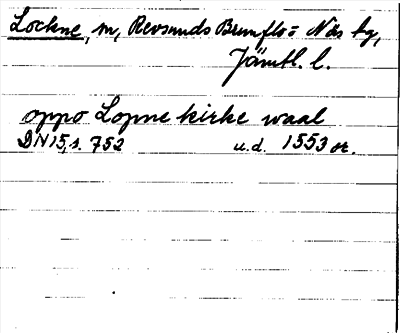 Lockne, m, Revsunds Brunflo o Näs tg,
Jämtl. l.
oppo Lopne kirke waal
DN 15, s. 752 u.d. 1553 or.